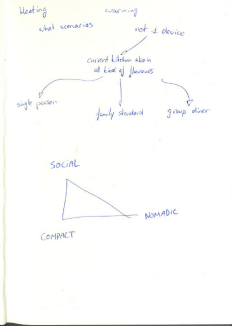 Heating warming
what scenarios not 1 device
current kitchen
all kind of flavours
single person family standard group diner
SOCIAL
NOMADIC
COMPACT